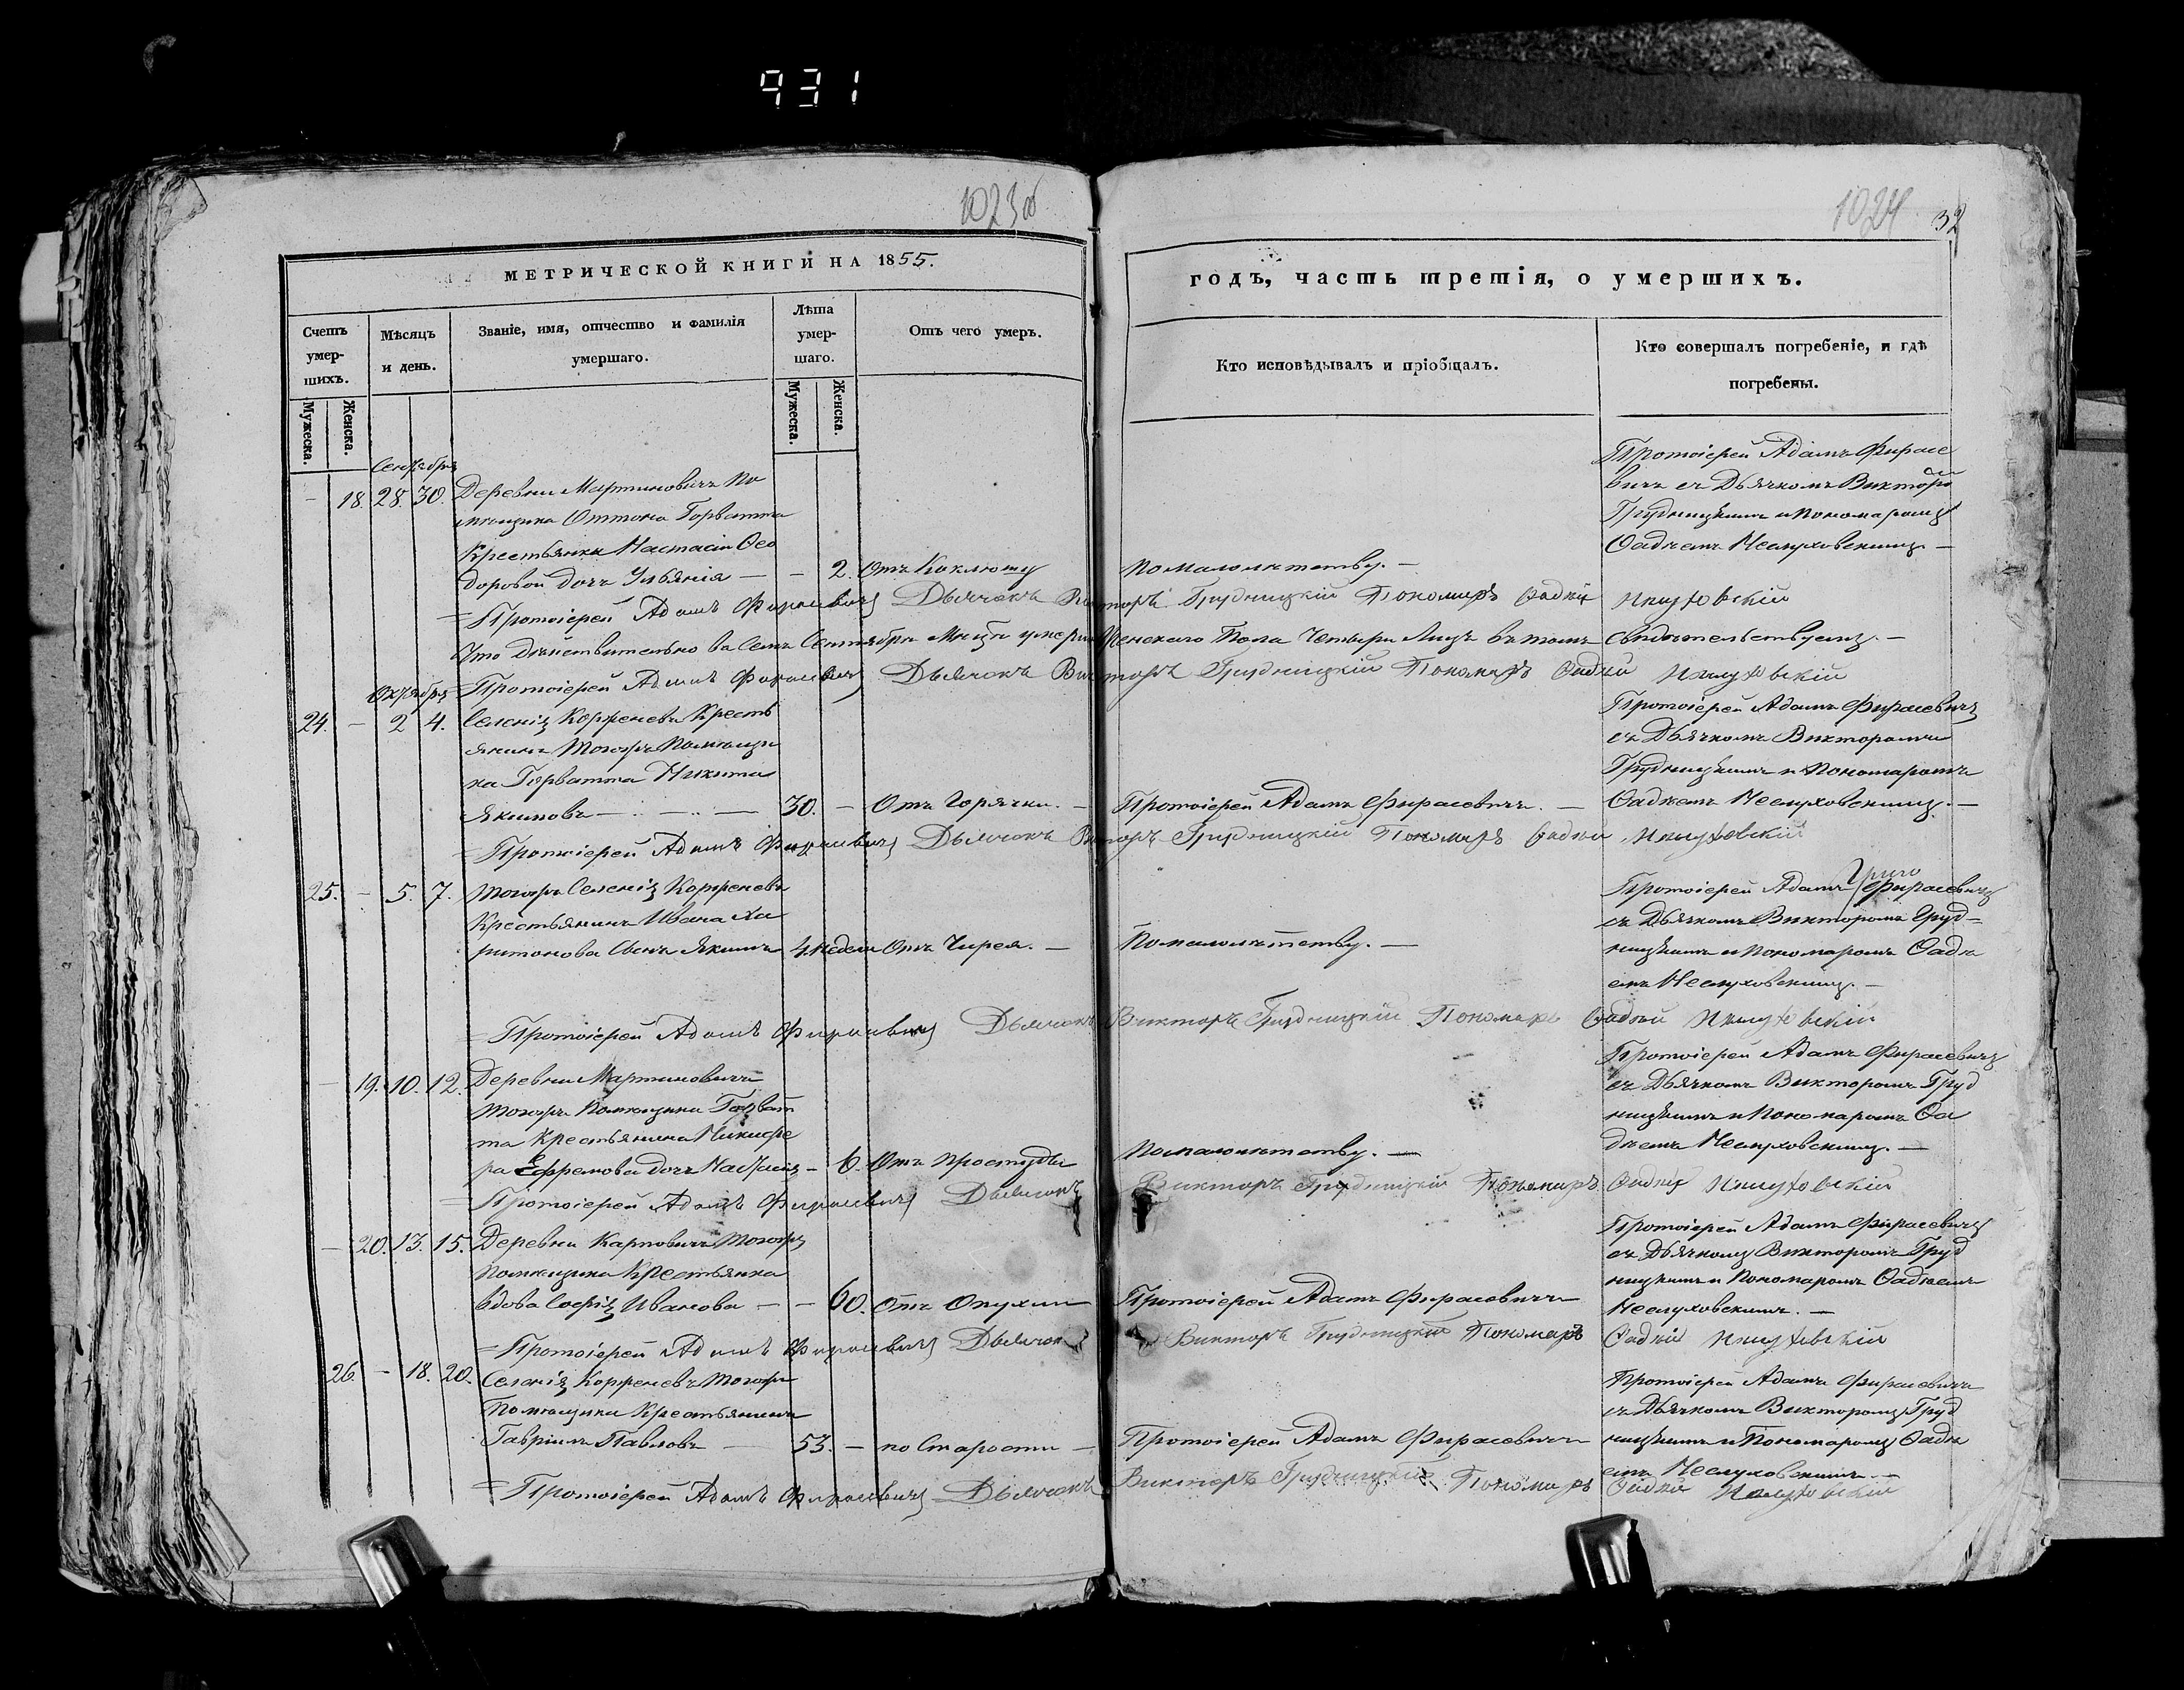 931
1023об
1024
32
МЕТРИЧЕСКОЙ КНИГИ НА 1855.
годъ, часть третія, о умершихъ.
Счетъ умер-шихъ.
Мужеска.
Женска.
Мѣсяцъ и день.
Званіе, имя, отчество и фамилія умершаго.
Лѣта умер-шаго.
Мужеска.
Женска.
Отъ чего умеръ.
Кто исповѣдывалъ и пріобщалъ.
Кто совершалъ погребеніе, и гдѣ погребены.
Сентября
— 18. 28. 30. Деревни Мартиновичъ По
мѣщика Оттона Горватта
Крестьянки Настасіи Ѳео
доровой дочь Ульянія — — 2. Отъ Коклюшу
По малолѣтству. —
Протоіерей Адамъ Фирасе
вичъ съ Дьячкомъ Викторо
Грудницкимъ и пономаромъ
Ѳадѣемъ Неслуховскимъ. —
= Протоіерей Адамъ Фирасевичъ Дьячокъ Викторъ Грудницкій Пономаръ Ѳадѣй
Что дѣйствительно въ семъ Сентябрѣ Женскаго Пола Четыри Лицъ въ томъ свидѣтельствуемъ. —
= Протоіерей Адамъ Фирасевичъ Дьячокъ Викторъ Грудницкій Пономаръ Ѳадѣй
Октября
24. — 2 4. Селенія Корженевъ Кресть
янинъ тогожъ Помѣщи
ка Горватта Никита
Якимовъ — — — 30. — Отъ Горячки. —
Протоіерей Адамъ Фирасевичъ. —
Протоіерей Адамъ Фирасевичъ
съ Дьячкомъ Викторомъ
Грудницкимъ и Пономаромъ
Ѳадѣемъ Неслуховскимъ. —
= Протоіерей Адамъ Фирасевичъ Дьячокъ Викторъ Грудницкій Пономаръ Ѳадѣй
25. — 5. 7. Тогожъ Селенія Корженевъ
Крестьянина Ивана Ха
ритонова Сынъ Якимъ 4 недели Отъ Чирея. —
По малолѣтству. —
Протоіерей Адамъ Фирасевичъ
съ Дьячкомъ Викторомъ Груд-
ницкимъ и пономаромъ Ѳадѣ
емъ Неслуховскимъ. —
= Протоіерей Адамъ Фирасевичъ Дьячокъ Викторъ Грудницкій Пономаръ Ѳадѣй
— 19. 10. 12. Деревни Мартиновичъ
тогожъ Помѣщика Горват
та Крестьянина Никифо
ра Ефремова дочь — 6. Отъ простуды
По малолѣтству. —
Протоіерей Адамъ Фирасевичъ
съ Дьячкомъ Викторомъ Груд
ницкимъ и Пономаромъ Ѳа
дѣемъ Неслуховскимъ. —
= Протоіерей Адамъ Фирасевичъ Дьячокъ Викторъ Грудницкій Пономаръ Ѳадѣй
— 20. 13. 15. Деревни Карповичъ тогожъ
Помѣщика Крестьянка
вдова Софія Иванова — — 60. Отъ Опухли
Протоіерей Адамъ Фирасевичъ
Протоіерей Адамъ Фирасевичъ
съ Дьячкомъ Викторомъ Груд
ницкимъ и Пономаромъ Ѳадѣемъ
Неслуховскимъ. —
= Протоіерей Адамъ Фирасевичъ Дьячокъ Викторъ Грудницкій Пономаръ Ѳадѣй
26. — 18. 20. Селенія Корженевъ тогожъ
Помѣщика Крестьянинъ
Гавріилъ Павловъ — 53. — по Старости —
Протоіерей Адамъ Фирасевичъ
Протоіерей Адамъ Фирасевичъ
съ Дьячкомъ Викторомъ Груд
ницкимъ и Пономаромъ Ѳадѣ
емъ Неслуховскимъ —
= Протоіерей Адамъ Фирасевичъ Дьячокъ Викторъ Грудницкій Пономаръ Ѳадѣй